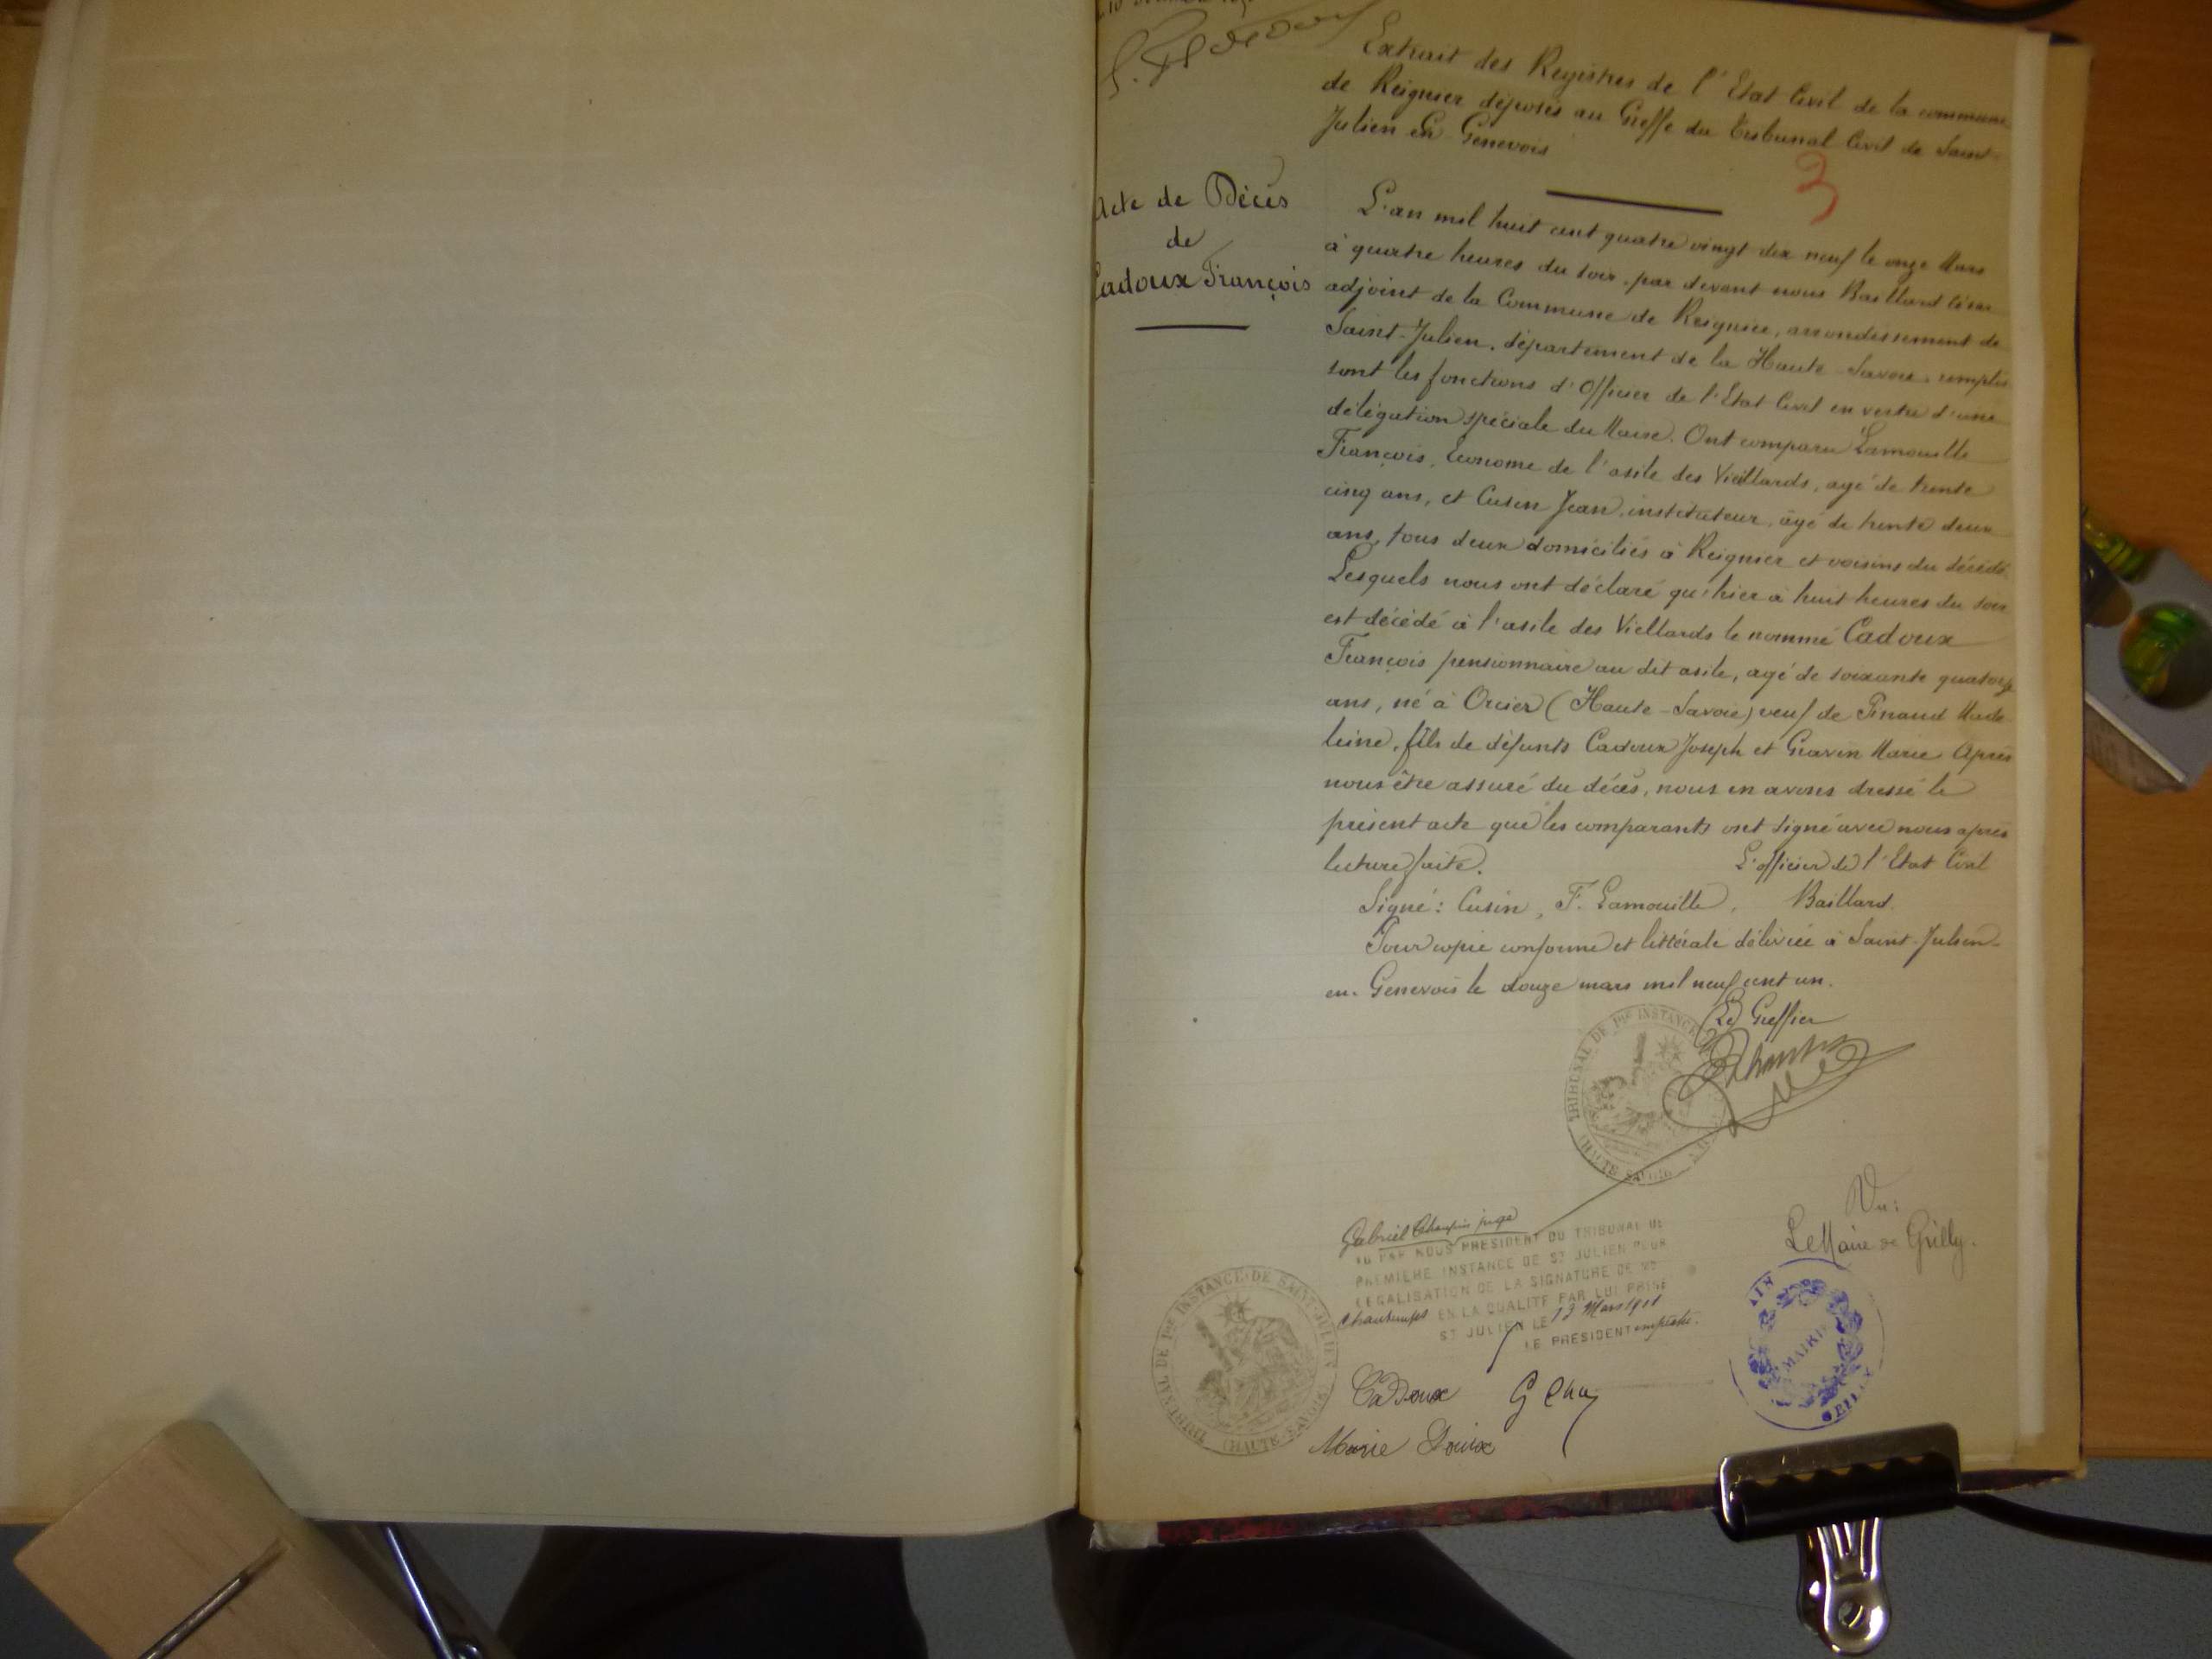 Extrait des Registres de l'Etat Civil de la commune
de Reignier déposés au Greffe du Tribunal Civil de Saint-
Julien en Genevois
3
Acte de Décès
de
Cadoux François
L'an mil huit cent quatre vingt dix neuf le onze Mars
à quatre heures du soir, par devant nous Baillard César
adjoint de la Commune de Reignier, arrondissement de
Saint-Julien, département de la Haute-Savoie, remplis-
sant les fonctions d'Officier de l'Etat Civil en vertu d'une
délégation spéciale du Maire. Ont comparu Lamouille
François, Econome de l'asile des Vieillards, agé de trente
cinq ans, et Cusin Jean, instituteur, âgé de trente deux
ans, tous deux domiciliés à Reignier et voisins du décédé.
Lesquels nous ont déclaré qu'hier à huit heures du soir
est décédé à l'asile des Viellards le nommé Cadoux
François pensionnaire au dit asile, agé de soixante quatorze
ans, né à Orcier (Haute-Savoie) veuf de Pinaud Made-
leine, fils de défunts Cadoux Joseph et Gravin Marie Après
nous être assuré du décès, nous en avons dressé le
présent acte que les comparants ont signé avec nous après
lecture faite. L'officier de l'Etat Civil
Signé: Cusin, F. Lamouille, Baillard.
Pour copie conforme et littérale délivrée à Saint-Julien-
en-Genevois le douze mars mil neuf cent un.
Le Greffier
TRIBUNAL DE 1re INSTANCE
(HAUTE SAVOIE)
Vu:
Le Maire de Grilly.
Gabriel juge
VU PAR NOUS PRESIDENT DU TRIBUNAL DE
PREMIERE INSTANCE DE ST JULIEN POUR
LEGALISATION DE LA SIGNATURE DE Mr
Chautemps EN LA QUALITE PAR LUI PRISE
ST JULIEN LE 13 Mars 1901
LE PRESIDENT empêché.
TRIBUNAL DE 1re INSTANCE DE SAINT-JULIEN
(HAUTE-SAVOIE)
MAIRIE
AIN
GRILLY
Cadoux
Marie